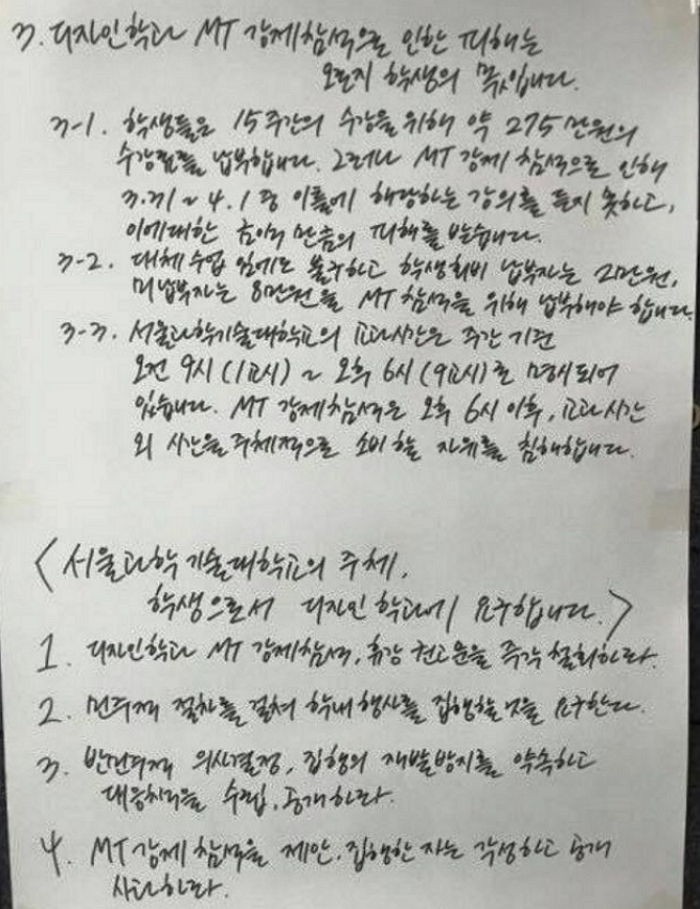 3. 디자인학과 MT 강제참석으로 인한 피해는
오롯이 학생의 몫입니다.
3-1. 학생들은 15주간의 수강을 위해 약 275만원의
수강료를 납부합니다. 그러나 MT 강제 참석으로 인해
3.31 ~ 4.1 중 이틀에 해당하는 강의를 듣지 못하고,
이에대한 만큼의 피해를 받습니다.
3-2. 대체수업 임에도 불구하고 학생회비 납부자는 2만원,
미납부자는 8만원을 MT 참석을 위해 납부해야 합니다.
3-3. 서울과학기술대학교의 교과시간은 주간 기준
오전 9시 (1교시) ~ 오후 6시 (9교시)로 명시되어
있습니다. MT 강제참석은 오후 6시 이후, 교과시간
외 시간을 주체적으로 소비할 자유를 침해합니다.
<서울과학기술대학교의 주체,
학생으로서 디자인학과에 요구합니다.>
1. 디자인학과 MT 강제참석, 휴강 권고문을 즉각 철회하라.
2. 민주적 절차를 걸쳐 학내행사를 집행할것을 요구한다.
3. 반민주적 의사결정, 집행의 재발방지를 약속하고
대응책을 수립, 공개하라.
4. MT 강제 참석을 제안, 집행한 자는 각성하고 공개
사과하라.